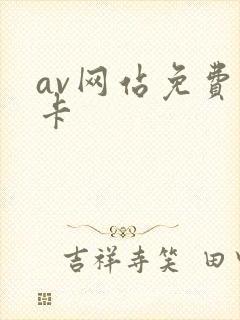 av网佔免費
卡
吉祥寺笑 田